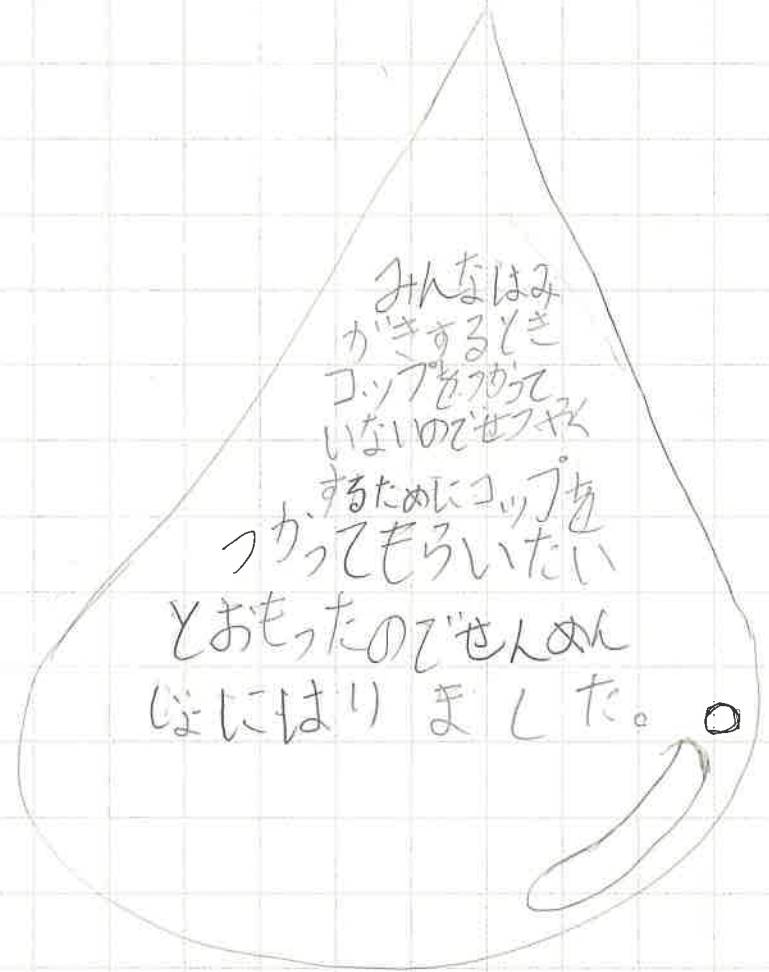 みんなはみ
がきするとき
コップをつかって
いないのでせつやく
するためにコップを
つかってもらいたい
とおもったのでせんめん
じょにはりました。